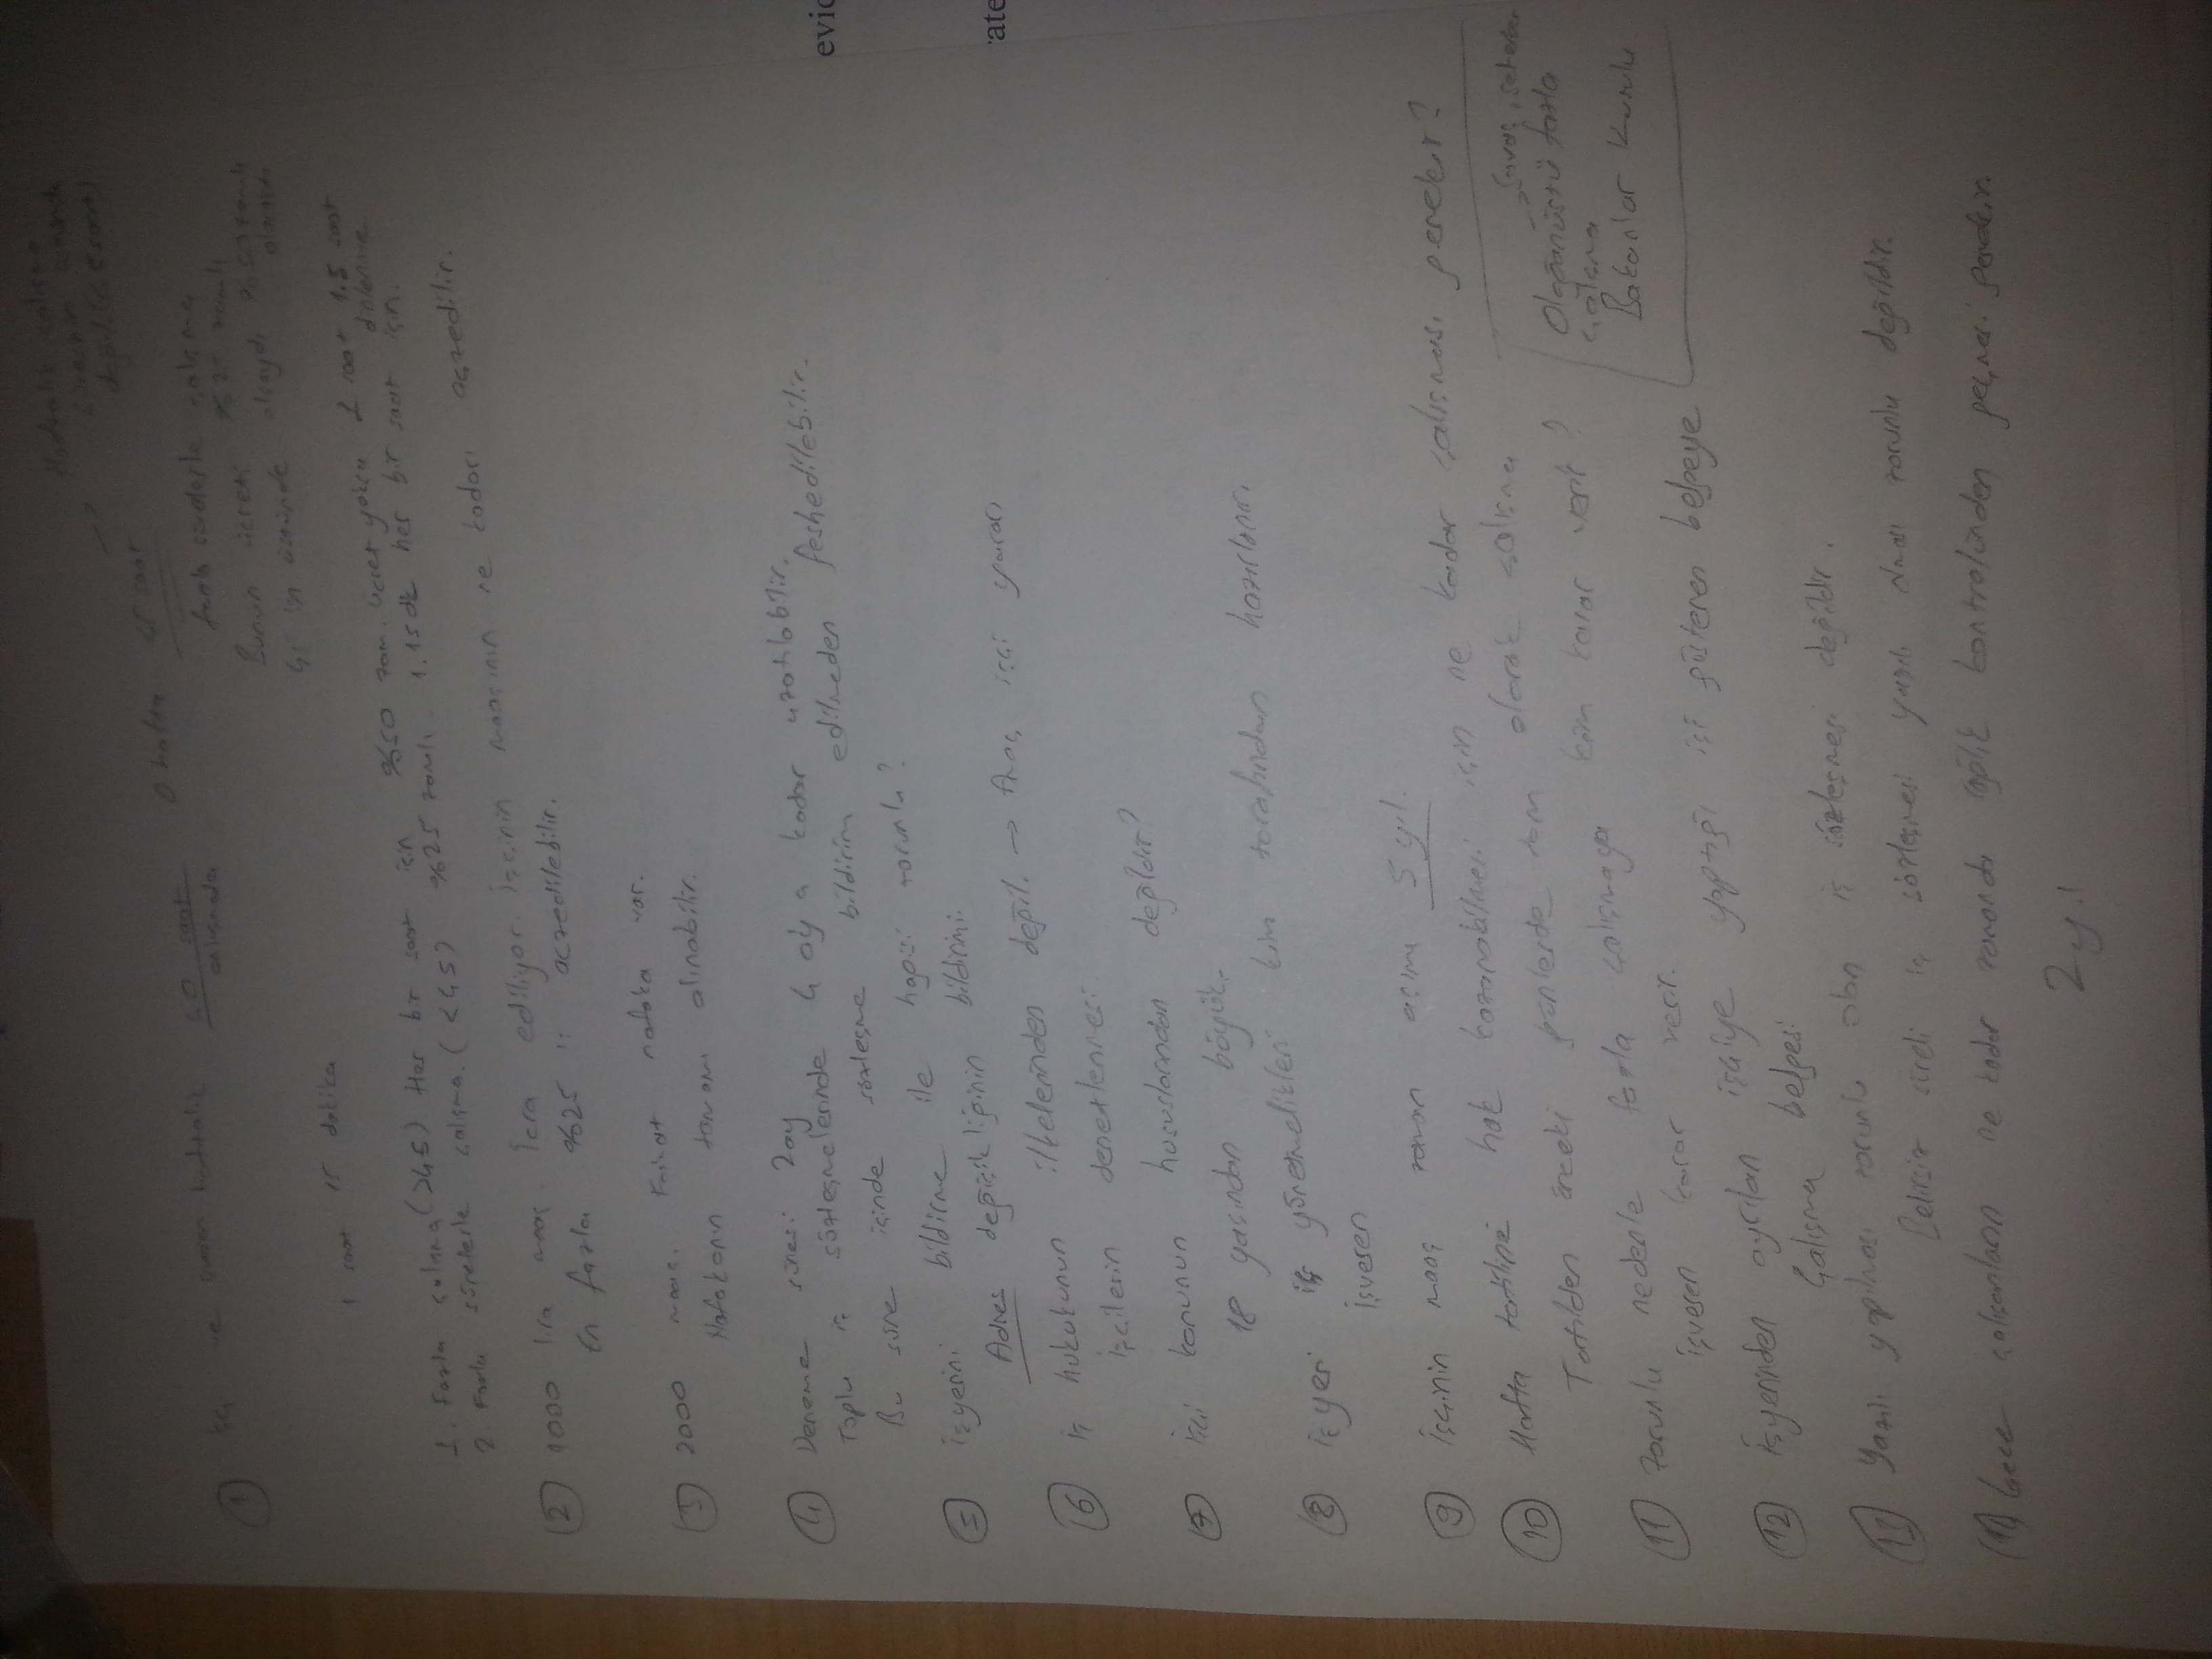 Haftalık çalışma
sürenin içinde
değil. (<45 saat)
① işçi ve işveren haftalık 40 saat O hafta 45 saat →
anlaşmada
fazla sürelerle çalışma
Bunun ücreti %25 zamlı
45 in üstünde olsaydı %50 zamlı
olacaktı
1 saat 15 dakika
1. Fazla çalışma (>45) Her bir saat için %50 zam. ücret yoksa 1 saat 1.5 saat
dinlenme
2. Fazla sürelerle çalışma. (<45) %25 zamlı. 1.15dk her bir saat için.
② 1000 lira maaş. İcra ediliyor. İşçinin maaşının ne kadarı aczedilir.
En fazla %25 'i aczedilebilir.
③ 2000 maaş. Fakat nafaka var.
Nafakanın tamamı alınabilir.
④ Deneme süresi 2ay
Toplu iş sözleşmelerinde 4 ay a kadar uzatılabilir.
Bu süre içinde sözleşme bildirim edilmeden feshedilebilir.
⑤ işyerini bildirme ile hapisi zorunlu?
Adres değişikliğinin bildirimi.
⑥ iş hukukunun ilkelerinden değil. → Amaç işçi yararı
İşçilerin denetlenmesi
⑦ kanunun hususlarından değildir?
18 yaşından büyük.
⑧ işyeri iç yönetmelikleri kim tarafından hazırlanır.
işveren
⑨ işçinin maaş zaman aşımı 5 yıl.
⑩ Hafta tatiline hak kazanabilmesi için ne kadar çalışması gerekir?
Tatilden önceki günlerde tam olarak çalışma
→ Savaş, seferber
Olağanüstü fazla
çalışma
Bakanlar Kurulu
⑪ zorunlu nedenle fazla çalışmaya kim karar verir?
işveren karar verir.
⑫ işyerinden ayrılan işçiye yaptığı işi gösteren belgeye
Çalışma belgesi
⑬ Yazılı yapılması zorunlu olan iş sözleşmesi değildir.
Belirsiz süreli iş sözleşmesi yazılı olması zorunlu değildir.
⑭ Gece çalışanların ne kadar zamanda sağlık kontrolünden geçmesi gerekir.
2 yıl